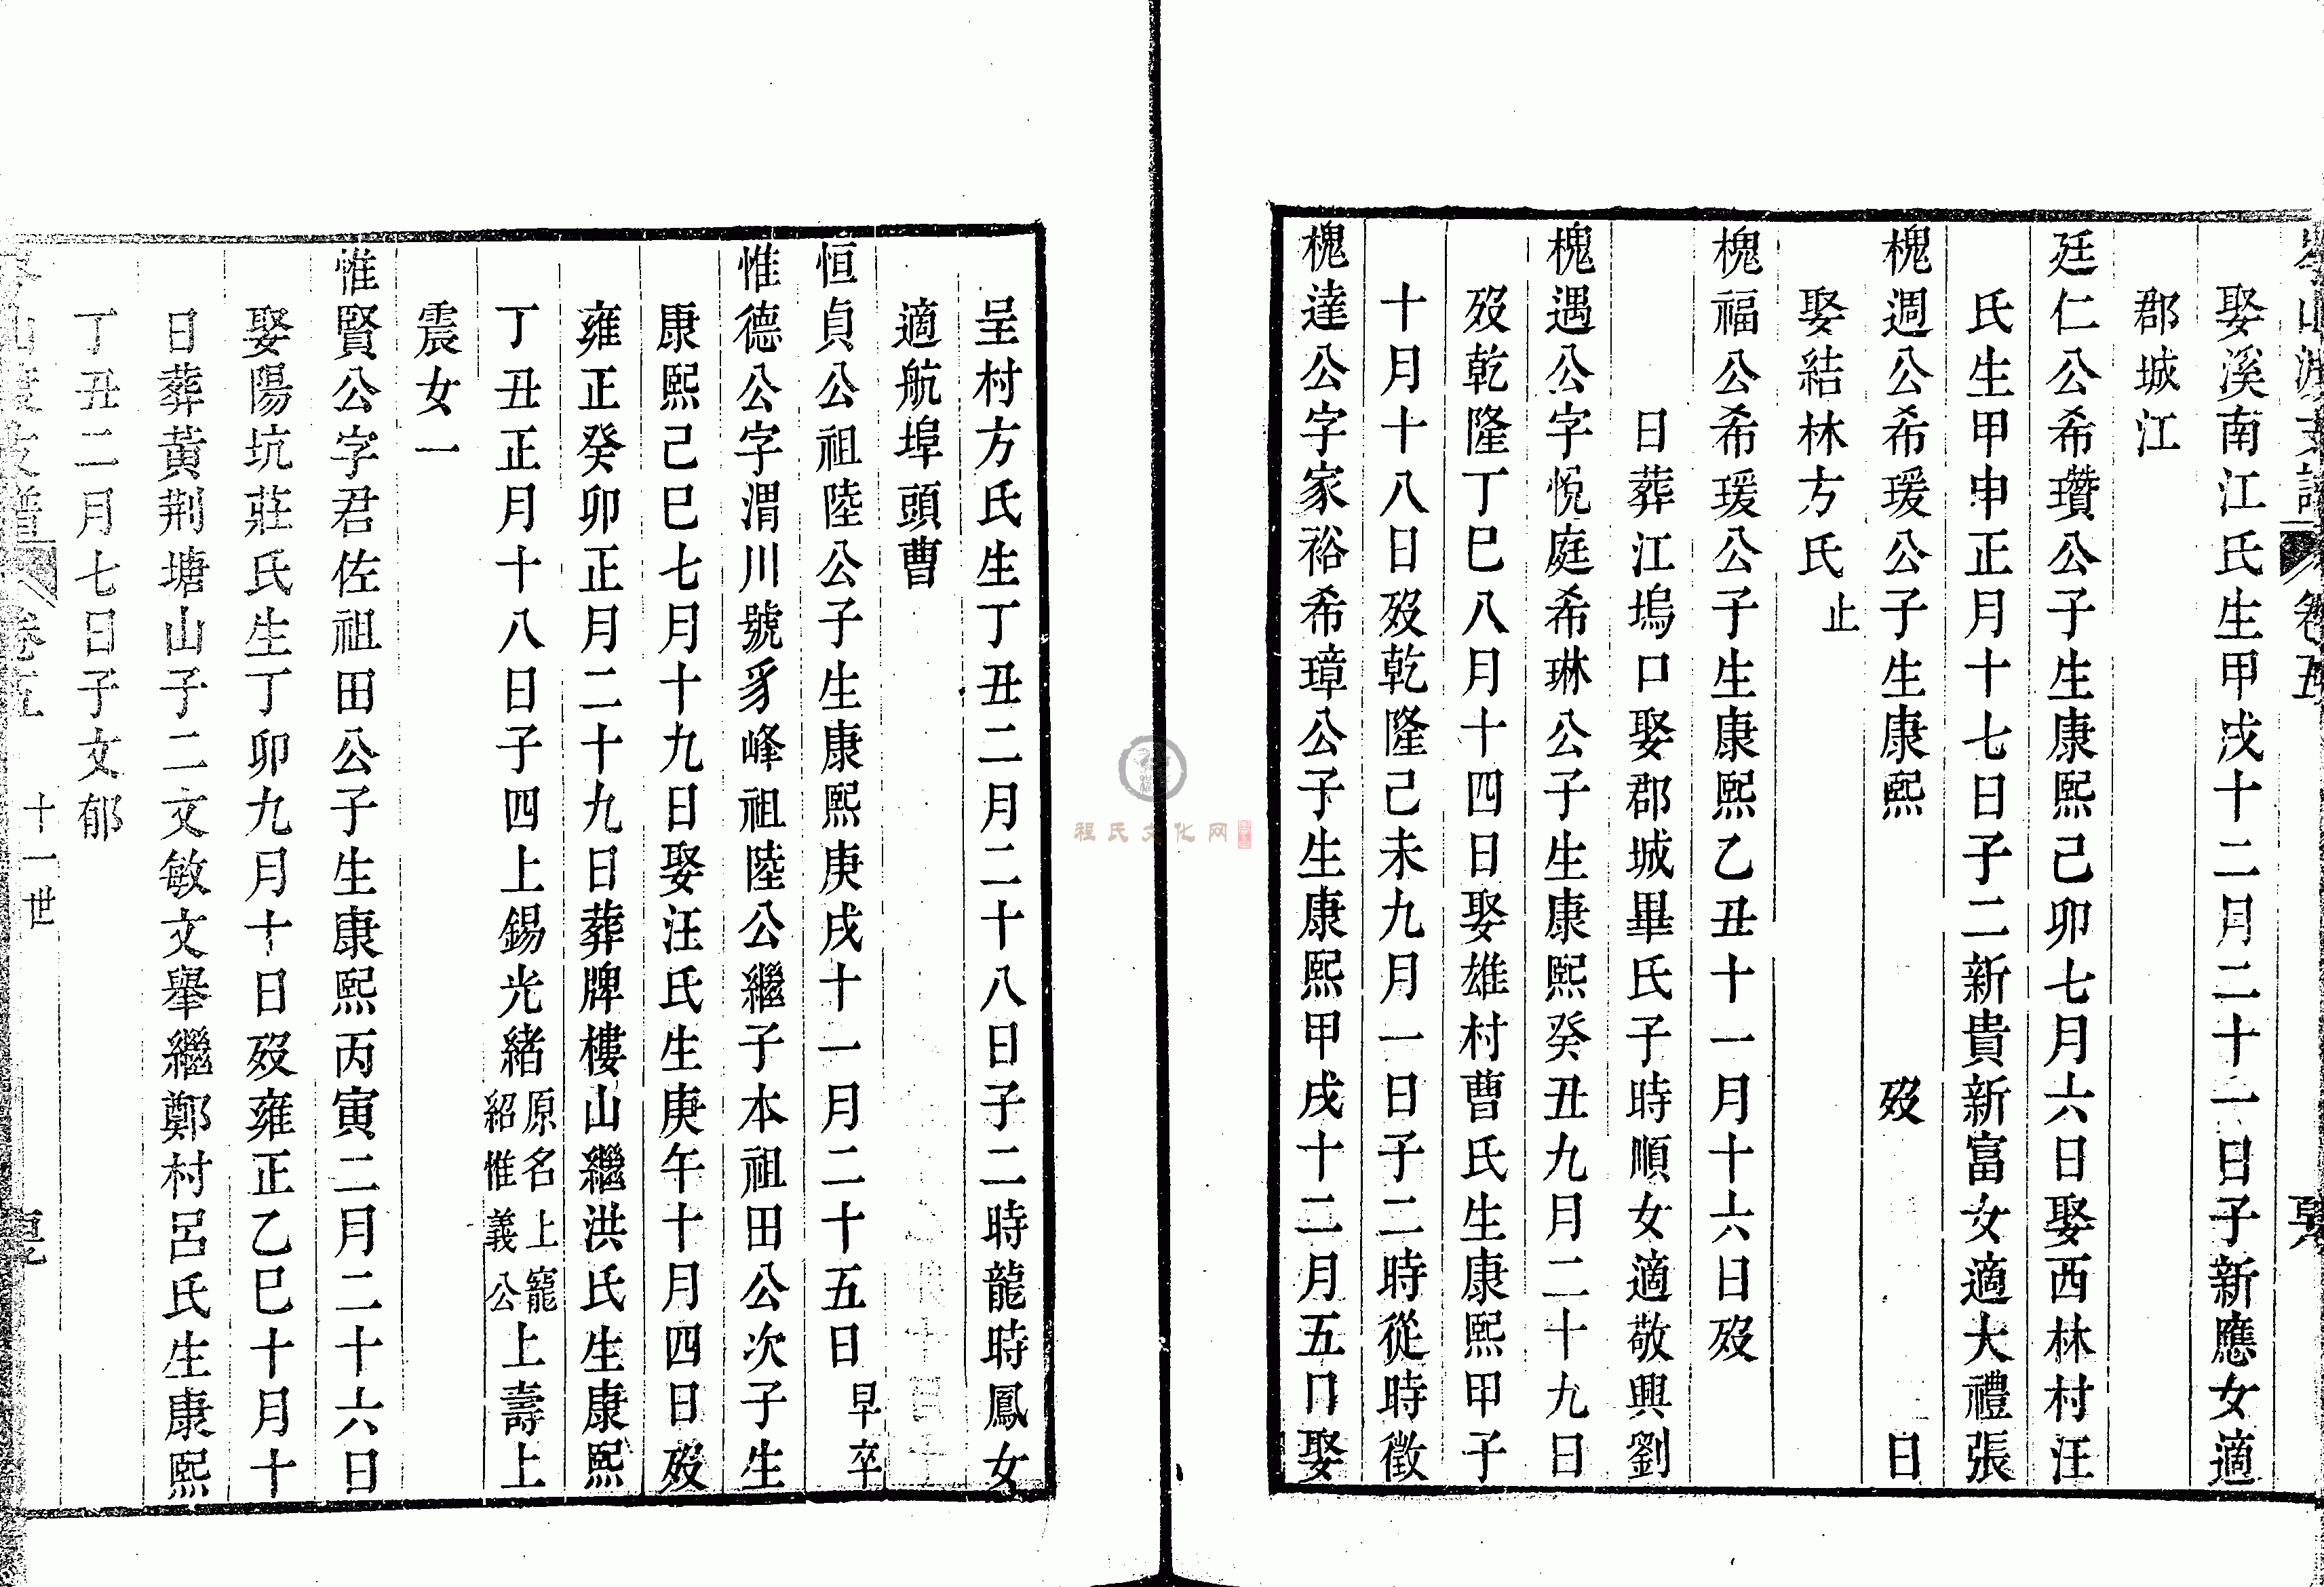 娶溪南江氏生甲戌十二月二十一日子新應女適
郡城江
廷仁公希瓚公子生康熙己卯七月六日娶西林村汪
氏生甲申正月十七日子二新貴新富女適大禮張
槐週公希瑗公子生康熙 歿 日
娶結林方氏 止
槐福公希瑗公子生康熙乙丑十一月十六日歿
日葬江塢口娶郡城畢氏子時順女適敬興劉
槐遇公字悅庭希琳公子生康熙癸丑九月二十九日
歿乾隆丁巳八月十四日娶雄村曹氏生康熙甲子
十月十八日歿乾隆己未九月一日子二時從時徵
槐達公字家裕希璋公子生康熙甲戌十二月五日娶
呈村方氏生丁丑二月二十八日子二時龍時鳳女
適航埠頭曹
恒貞公祖陸公子生康熙庚戌十一月二十五日 早卒
惟德公字渭川號豸峰祖陸公繼子本祖田公次子生
康熙己巳七月十九日娶汪氏生庚午十月四日歿
雍正癸卯正月二十九日葬牌樓山繼洪氏生康熙
丁丑正月十八日子四上錫光緒原名上寵紹惟義公上壽上
震女一
惟賢公字君佐祖田公子生康熙丙寅二月二十六日
娶陽坑莊氏生丁卯九月十日歿雍正乙巳十月十
日葬黃荆塘山子二文敏文舉繼鄭村呂氏生康熙
丁丑二月七日子文郁
卷五 十一世
程氏文化网